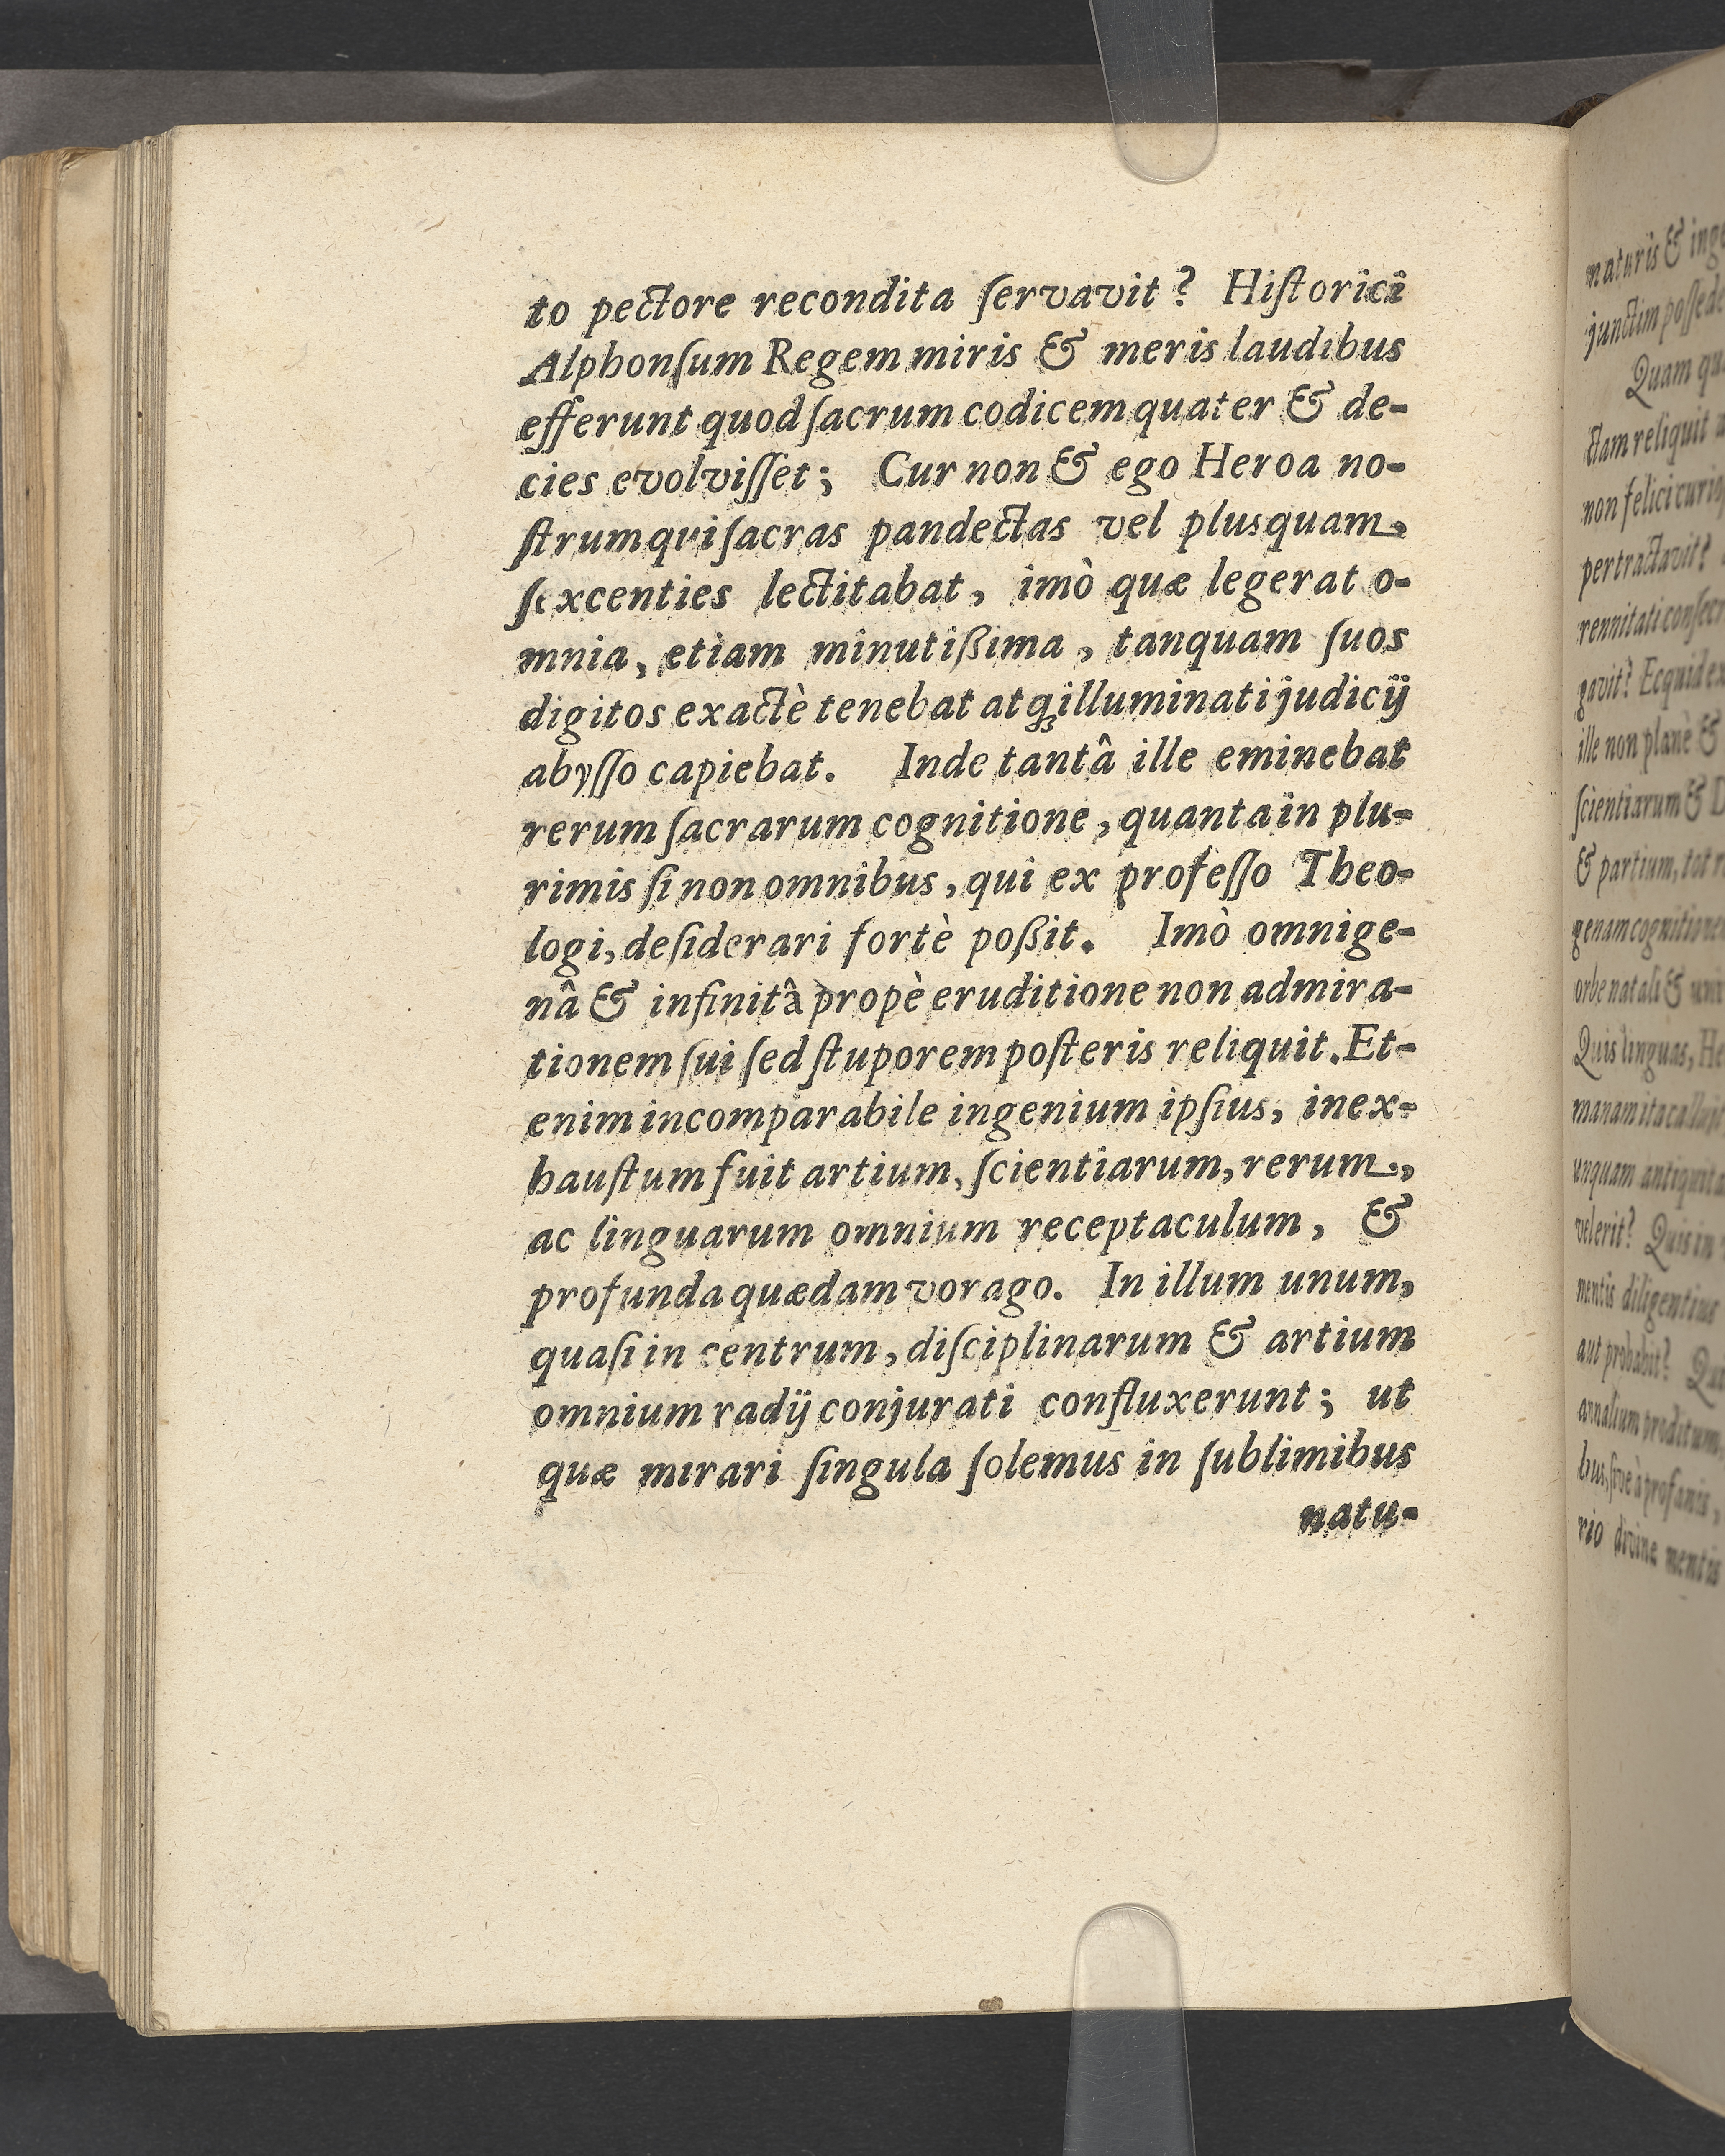 to pectore recondita ſervavit? Hiſtorici
Alphonſum Regem miris & meris laudibus
efferunt quod ſacrum codicem quater & de-
cies evolviſſet; Cur non & ego Heroa no-
ſtrum qui ſacras pandectas vel plusquam,
ſexcenties lectitabat, imò quæ legerat o-
mnia, etiam minutißima, tanquam ſuos
digitos exactè tenebat atqꝫ illuminati judicij
abyſſo capiebat. Inde tantâ ille eminebat
rerum ſacrarum cognitione, quanta in plu-
rimis ſi non omnibus, qui ex profeſſo Theo-
logi, deſiderari fortè poßit. Imò omnige-
nâ & infinitâ propè eruditione non admira-
tionem ſui ſed ſtuporem poſteris reliquit. Et-
enim incomparabile ingenium ipſius, inex-
hauſtum fuit artium, ſcientiarum, rerum,
ac linguarum omnium receptaculum, &
profunda quædam vorago. In illum unum,
quaſi in centrum, diſciplinarum & artium
omnium radij conjurati confluxerunt; ut
quæ mirari ſingula ſolemus in ſublimibus
natu-
maturis &
Quam
ctam reliquit
pertractavit?
gavit?
ille non planè &
ſcientiarum &
& partium,
orbe natali &
Quis linguas,
unquam
velerit? Quis in
mentis diligentius
aut probabit?
annalium proditum,
rio divinæ mentis